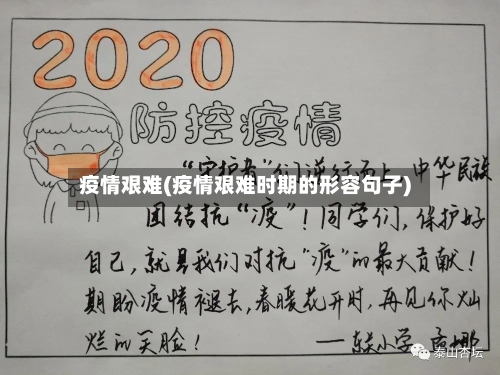 2020
防控疫情
“守护者”们逆行而上,中华民族
疫情艰难(疫情艰难时期的形容句子)
团结抗“疫”!同学们,保护好
自己,就是我们对抗“疫”的最大贡献!
期盼疫情褪去,春暖花开时,再见你灿
烂的笑脸!
——东关小学
泰山杏坛